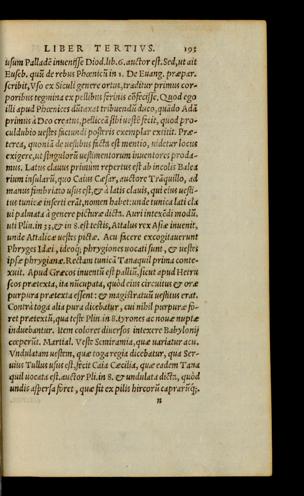 LIBER TERTIVS. 193
usum Palladē inuenisse Diod.lib.6.auctor est.Sed,ut ait
Euseb. quū de rebus Phœnicū in 1. De Euang. præpar.
scribit, Vso ex Siculi genere ortus, traditur primus cor-
poribus tegmina ex pellibus ferinis cōfecisse. Quod ego
illi apud Phœnices dūtaxat tribuendū duco, quādo Adā
primus à Deo creatus, pelliceā sibi uestē fecit, quod pro-
culdubio uestis faciundi posteris exemplar extitit. Præ-
terea, quoniā de uestibus facta est mentio, uidetur locus
exigere, ut singulorū uestimentorum inuentores proda-
mus. Latus clauus primùm repertus est ab incolis Balea
rium insularū, quo Caius Cæsar, auctore Trāquillo, ad
manus fimbriato usus est, & à latis clauis, qui eius uesti-
tus tunicæ inserti erāt, nomen habet: unde tunica lati cla
ui palmata à genere picturæ dicta. Auri intexēdi modū,
uti Plin.in 33, & in 8.est testis, Attalus rex Asiæ inuenit,
unde Attalicæ uestes pictæ. Acu facere excogitauerunt
Phryges Idæi, ideoq; phrygiones uocati sunt, & uestes
ipsæ phrygianæ. Rectam tunicā Tanaquil prima conte-
xuit. Apud Græcos inuentū est pallium, sicut apud Hetru
scos prætexta, ita nūcupata, quòd eius circuitus & oræ
purpura prætexta essent: & magistratuū uestitus erat.
Contrà toga alia pura dicebatur, cui nihil purpuræ fo-
ret prætextū, qua teste Plin in 8.tyrones ac nouæ nuptæ
induebantur. Item colores diuersos intexere Babylonij
cœperūt. Martial. Vest⸗ Semiramia, quæ uariatur acu.
Vndulatam uestem, quæ toga regia dicebatur, qua Ser-
uius Tullus usus est, fecit Caia Cæcilia, quæ eadem Tana
quil uocata est. auctor Pli.in 8. & undulata dicta, quòd
undis aspersa foret, quæ fit ex pilis hircorū caprarūq;.
n